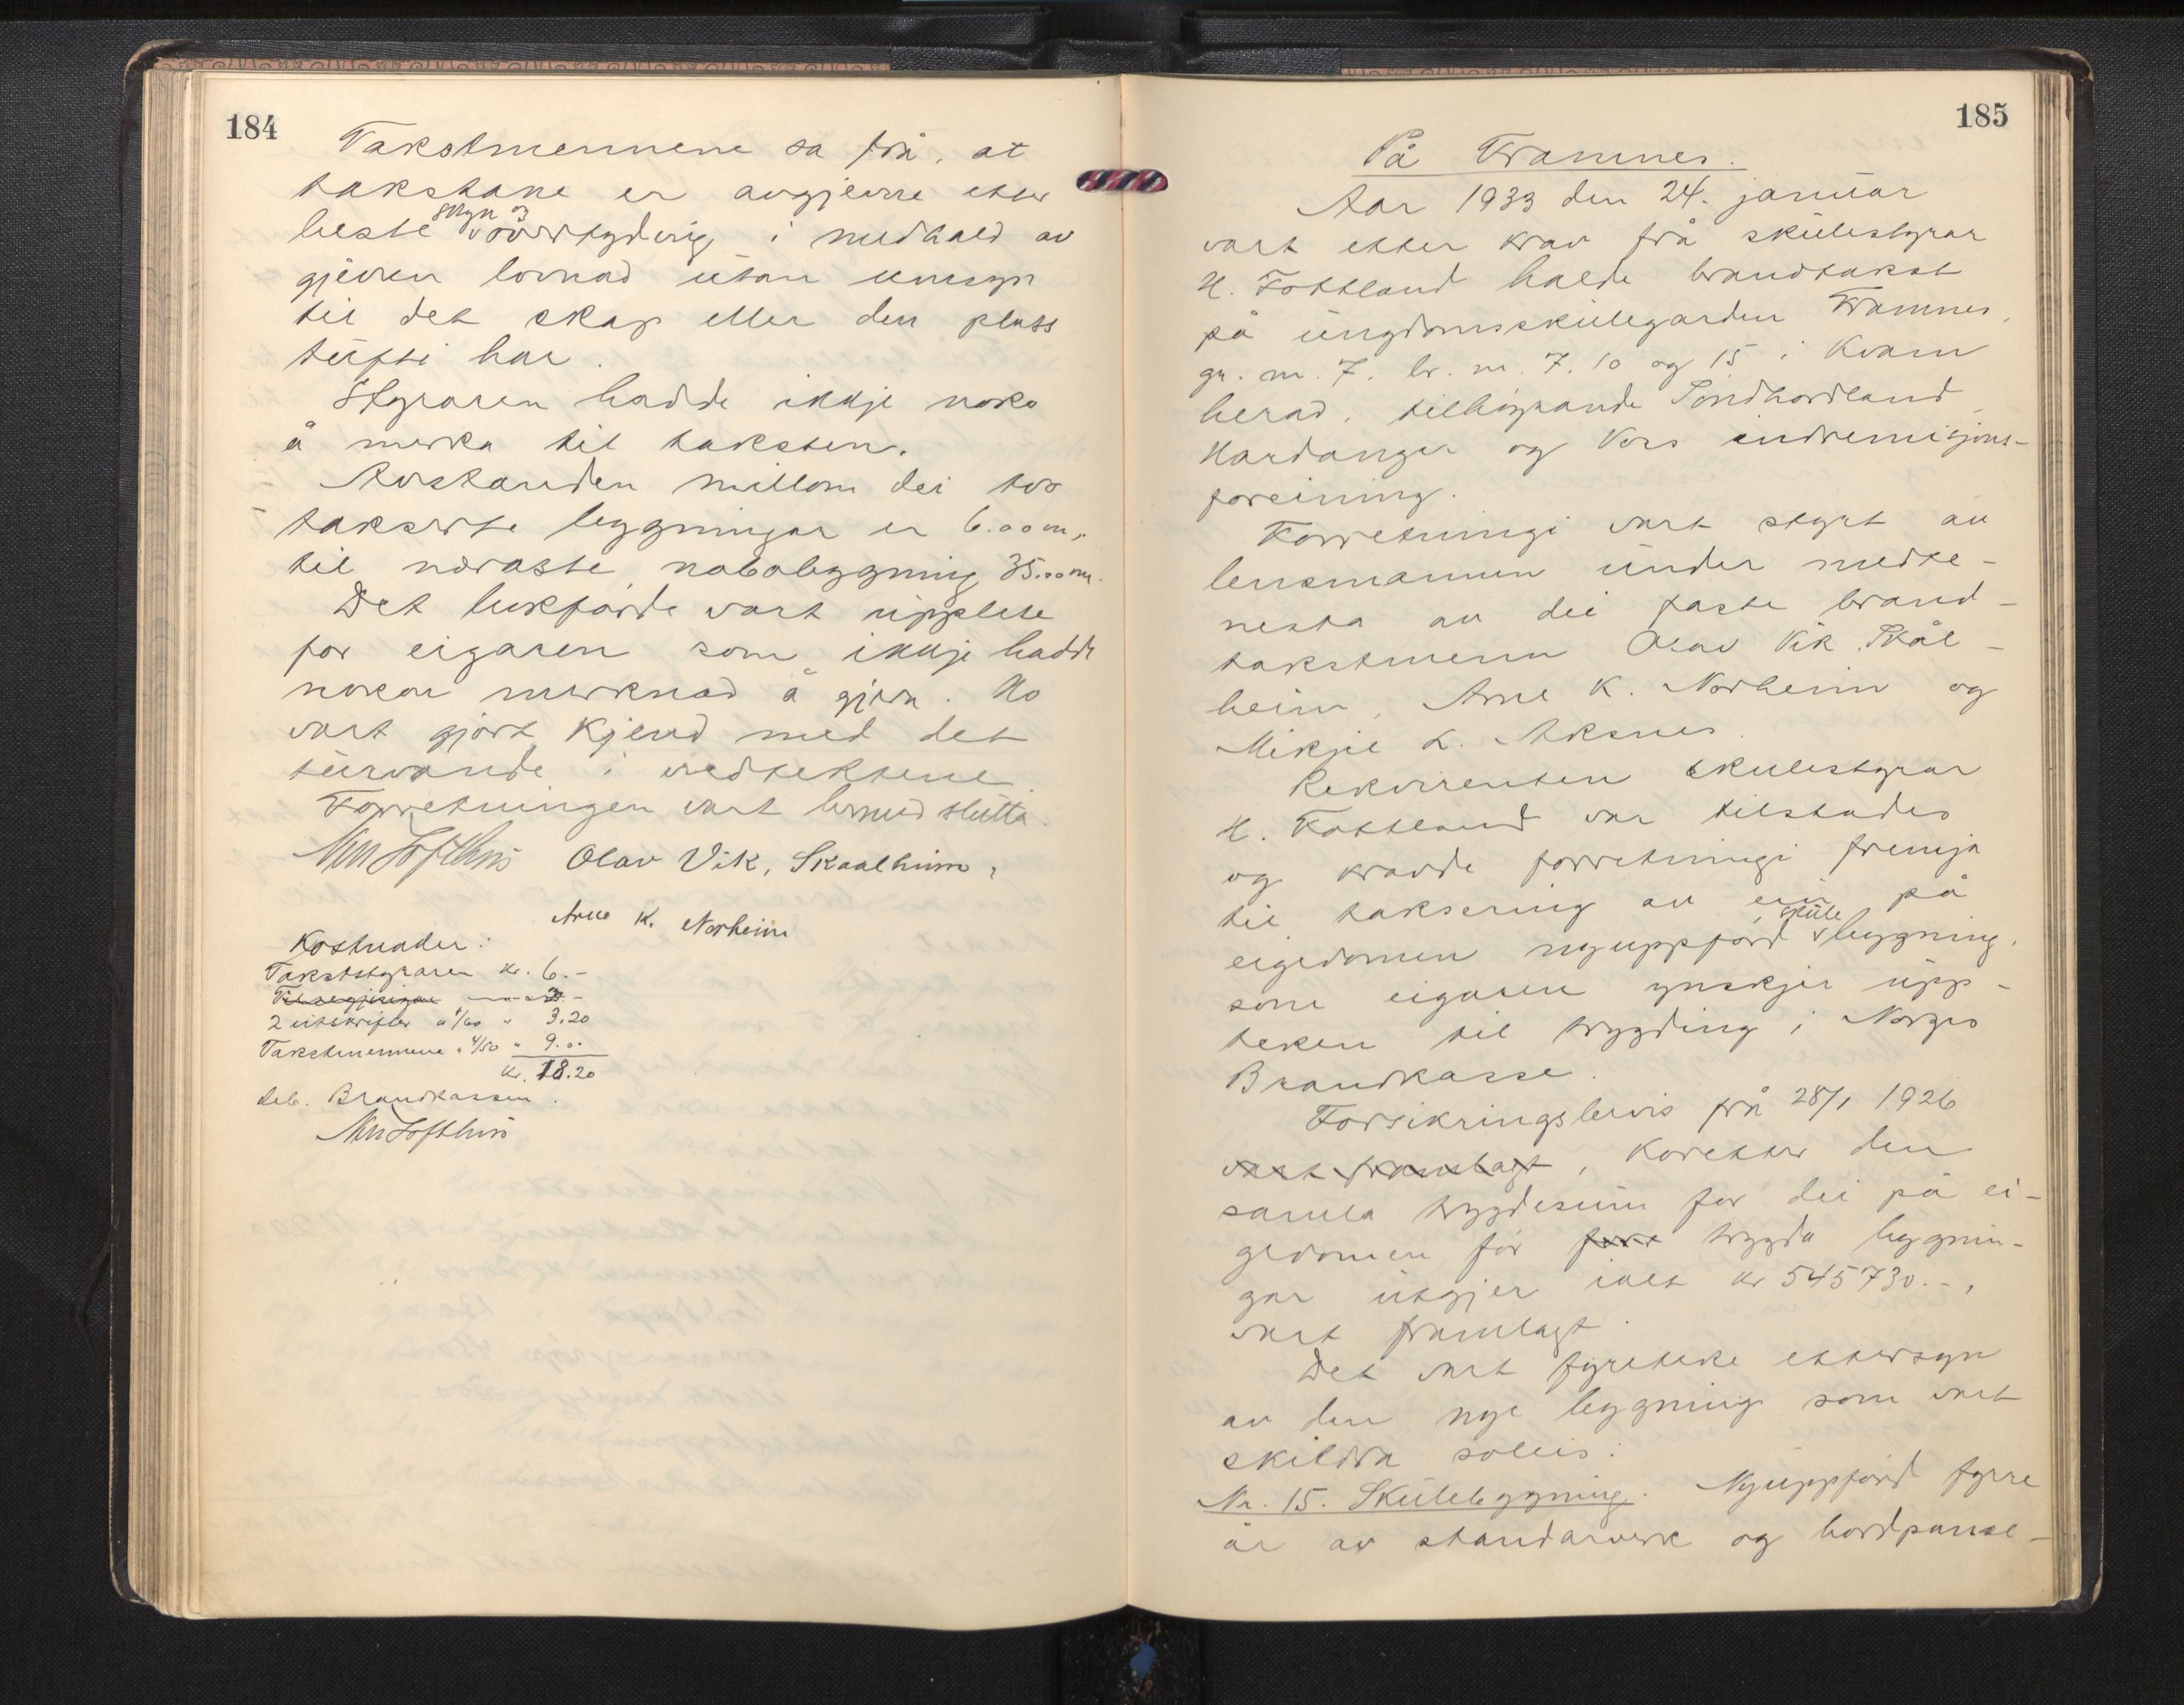 184
Takstmennene sa frå, at
takstane er avgjevne etter
beste skyn og overtyding i medhald av
gjeven lovnad utan umsyn
til det skap eller den plass
tufti har.
Styraren hadde ikkje noko
å merka til taksten.
Avstanden millom dei tvo
takserte bygningar er 6.00 m,
til næraste nabobygning 35.00 m.
Det bukførde vart upplese
for eigaren som ikkje hadde
nokon merknad å gjera. Ho
vart gjort kjend med det
turvande i vedtektene
Forretningen vart hermed slutta.
Olav Vik, Skaalheim,
Arne K. Norheim
Kostnader:
Takststyraren kr. 6.-
2 utskrifter a 1/60 " 3.20
Takstmennene a 4/50 " 9.00
Kr. 18.20
deb. Brandkassen.
185
På Framnes.
Aar 1933 den 24. januar
vart etter krav frå skulestyrar
H. Fottland halde brandtakst
på ungdomsskulegarden Framnes,
gr. nr. 7, br. nr. 7, 10 og 15 i Kvam
herad, tilhøyrande Sondhordland
Hardanger og Vors indremisjons-
foreining.
Forretningi vart styrt av
lensmannen under medte-
nesta av dei faste brand-
takstmenn Olav Vik Skål-
heim, Arne K. Norheim og
Mikjel L. Aksnes.
Rekvirenten skulestyrar
H. Fottland var tilstades
og kravde forretningi fremja
til taksering av ein på
eigedomen nyuppførd skulebygning,
som eigaren ynskjer upp-
teken til trygding i Norges
Brandkasse.
Forsikringsbevis frå 28/1 1926
vart framlagt, koretter den
samla trygdesum for dei på ei-
gedomen før trygda bygnin-
gar utgjer ialt kr 545730.-,
vart framlagt.
Det vart fyreteke ettersyn
av den nye bygning som vart
skildra soleis:
Nr. 15. Skulebygning. Nyuppførd fyrre
år av standarverk og bordpanse-